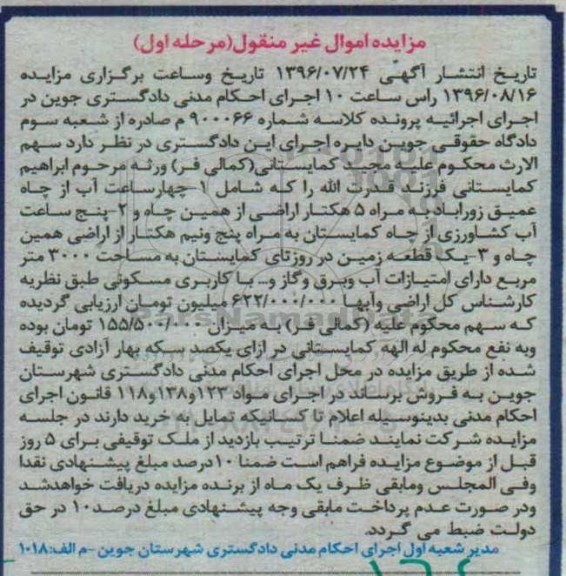 مزایده اموال غیر منقول(مرحله اول)
تاریخ انتشار آگهی ۱۳۹۶/۰۷/۲۴ تاریخ وساعت برگزاری مزایده
۱۳۹۶/۰۸/۱۶ راس ساعت ۱۰ اجرای احکام مدنی دادگستری جوین در
اجرای اجرائیه پرونده کلاسه شماره ۹۰۰۰۶۶ م صادره از شعبه سوم
دادگاه حقوقی جوین دایره اجرای این دادگستری در نظر دارد سهم
الارث محکوم علیه کمایستانی(کمالی فر) ورثه مرحوم ابراهیم
کمایستانی فرزند قدرت الله را که شامل ۱-چهارساعت آب از چاه
عمیق زوراباد به مراه ۵ هکتار اراضی از همین چاه و ۲-پنج ساعت
آب کشاورزی از چاه کمایستان به مراه پنج ونیم هکتار از اراضی همین
چاه و ۳-یک قطعه زمین در روزتای کمایستان به مساحت ۳۰۰۰ متر
مربع دارای امتیازات آب وبرق وگاز و... با کاربری مسکونی طبق نظریه
کارشناس کل اراضی وآبها ۶۲۲/۰۰۰/۰۰۰ میلیون تومان ارزیابی گردیده
که سهم محکوم علیه (کمالی فر) به میزان ۱۵۵/۵۰۰/۰۰۰ تومان بوده
وبه نفع محکوم له الهه کمایستانی در ازای یکصد سکه بهار آزادی توقیف
شده از طریق مزایده در محل اجرای احکام مدنی دادگستری شهرستان
جوین به فروش برساند در اجرای مواد ۱۲۳و۱۳۸و۱۱۸ قانون اجرای
احکام مدنی بدینوسیله اعلام تا کسانیکه تمایل به خرید دارند در جلسه
مزایده شرکت نمایند ضمنا ترتیب بازدید از ملک توقیفی برای ۵ روز
قبل از موضوع مزایده فراهم است ضمنا ۱۰درصد مبلغ پیشنهادی نقدا
وفی المجلس ومابقی ظرف یک ماه از برنده مزایده دریافت خواهدشد
ودر صورت عدم پرداخت مابقی وجه پیشنهادی مبلغ درصد۱۰ در حق
دولت ضبط می گردد.
مدیر شعبه اول اجرای احکام مدنی دادگستری شهرستان جوین -م الف:۱۰۱۸